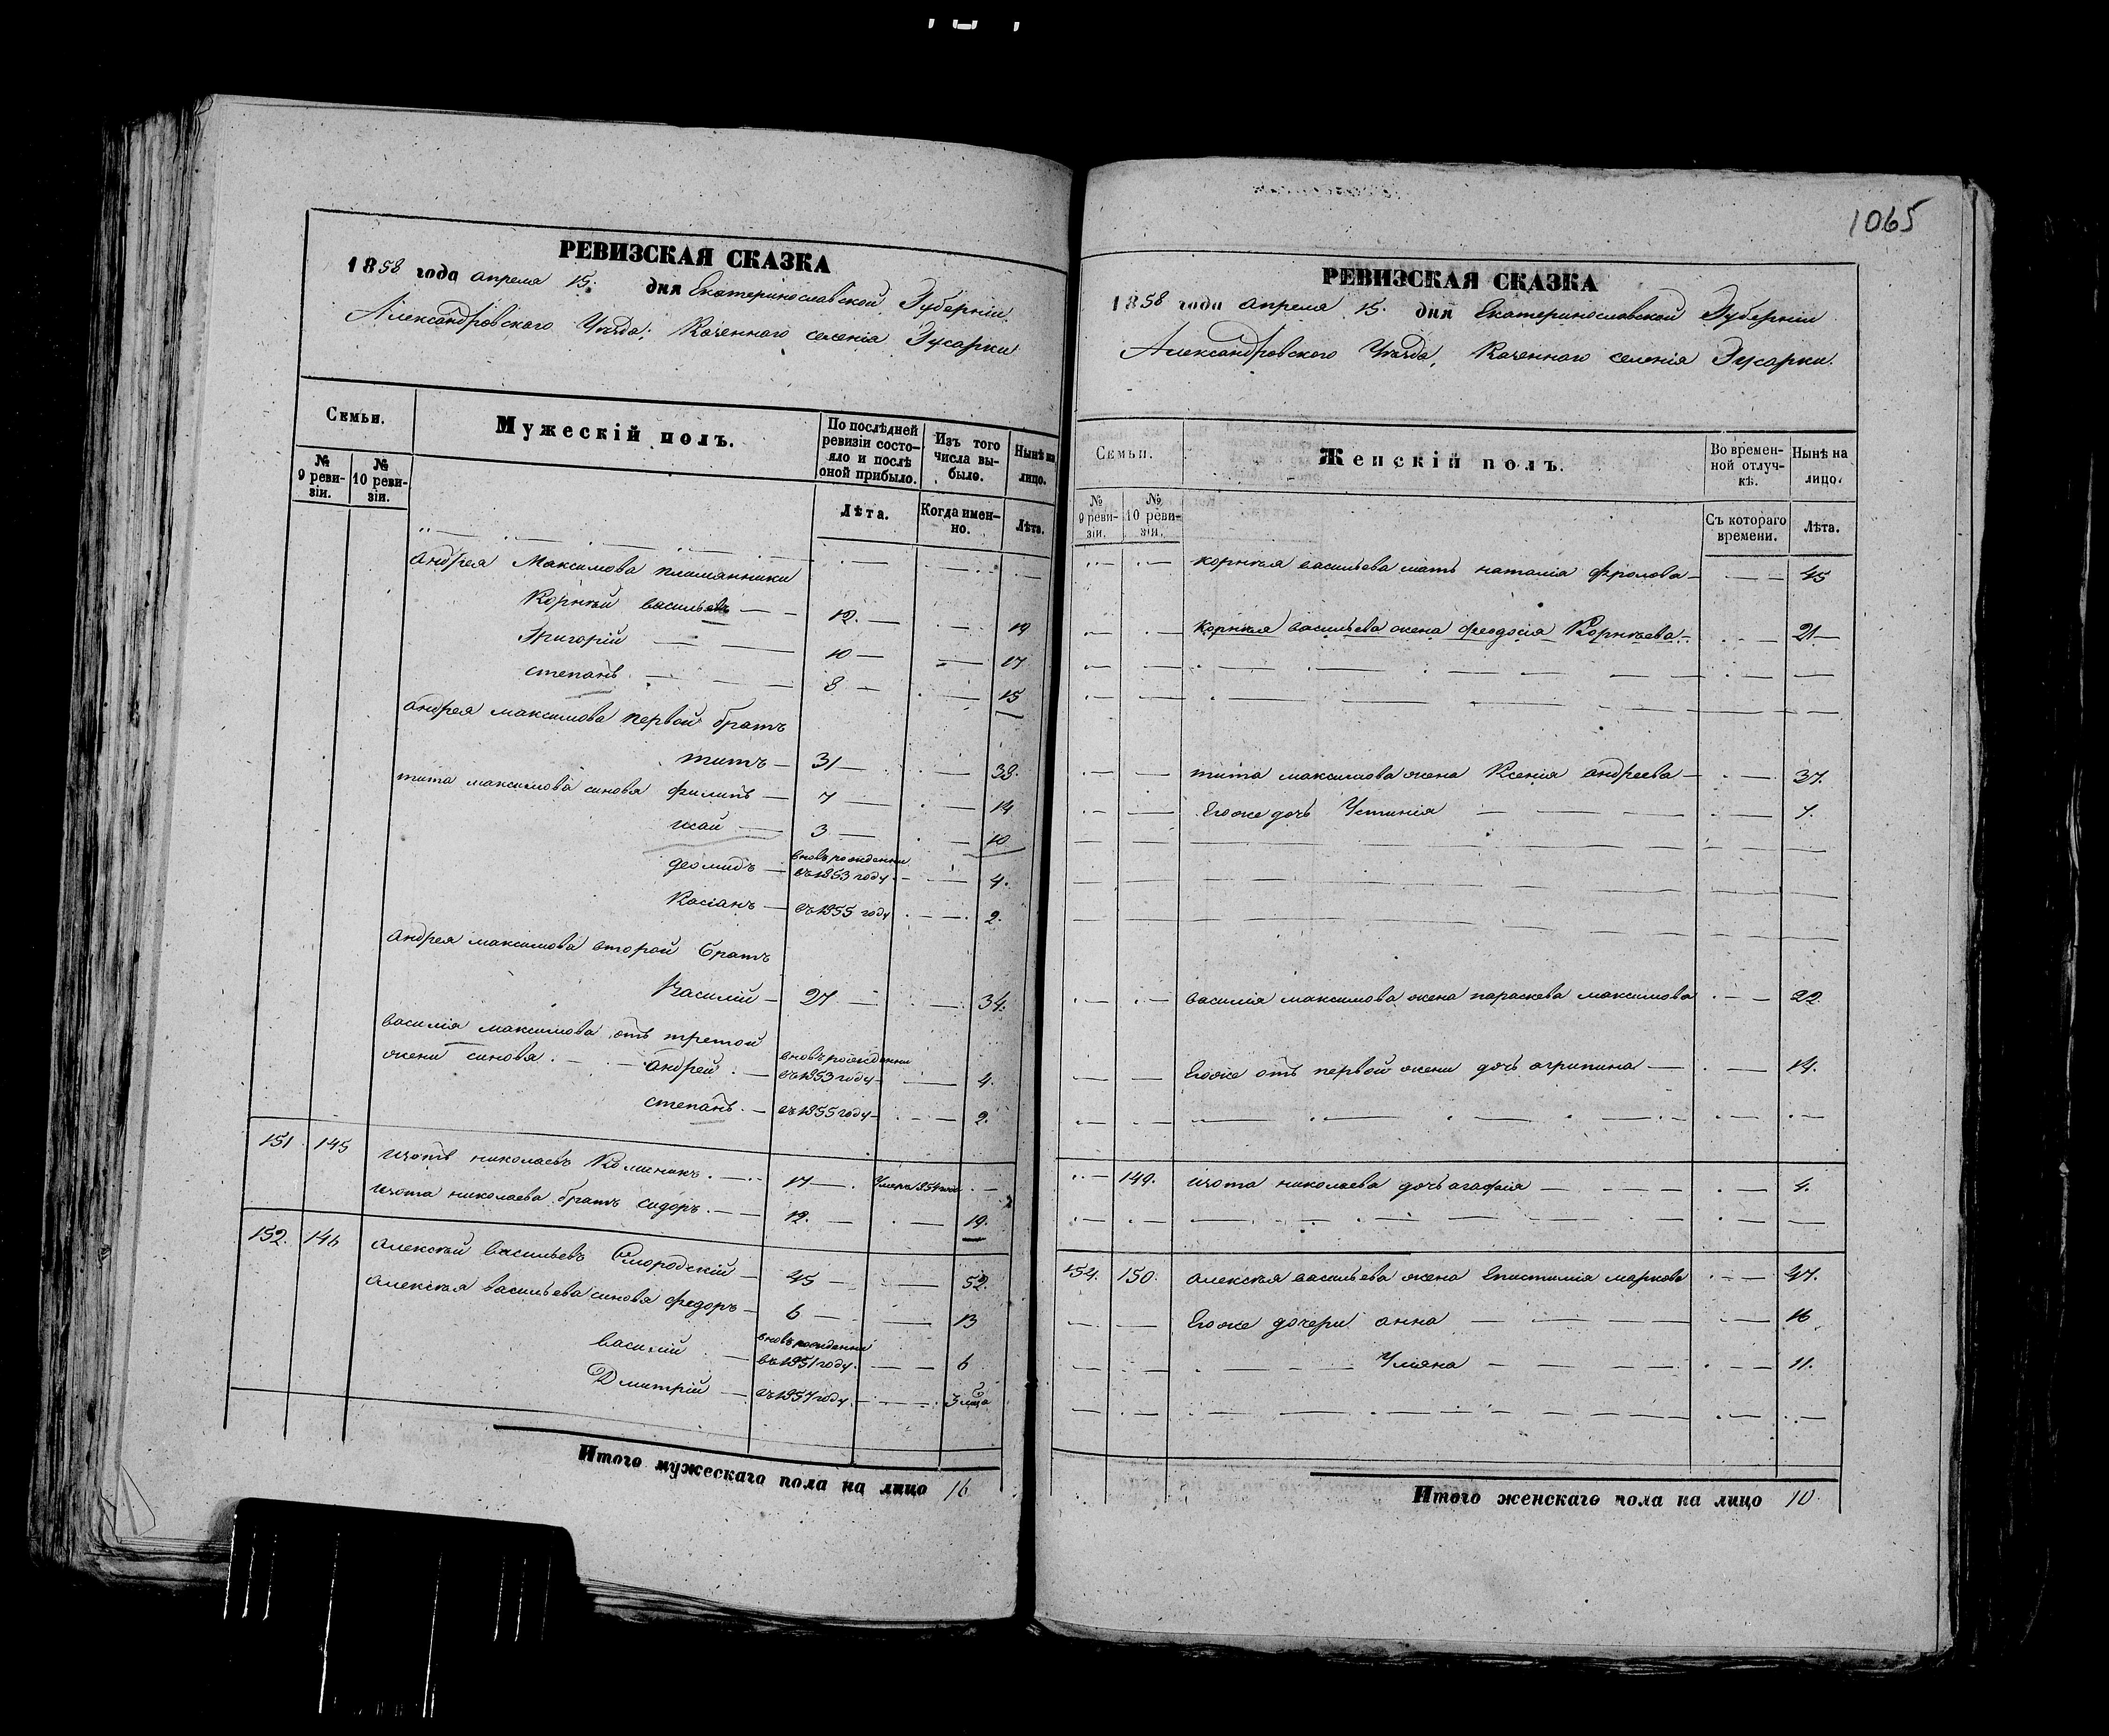 1065
РЕВИЗСКАЯ СКАЗКА
1858 года апреля 15. дня Екатеринославской Губерніи
Александровского Уѣзда, Казенного селенія Гусарки
Семьи.
Мужескій полъ.
По послѣдней ревизіи состояло и послѣ оной прибыло.
Изъ того числа выбыло.
Нынѣ на лицо.
№ 9 ревизіи.
№ 10 ревизіи.
Лѣта.
Когда именно.
Лѣта.
Андрея Максимова племянники
Корнѣй васильевъ — 12. — — 19
Григорій — 10 — — 17
степанъ — 8 — — 15
андрея максимова первой братъ
титъ — 31 — — 38.
тита максимова синовя филипъ — 7 — — 14
исай — 3 — — 10
деомидъ — вновь рожденни
въ 1853 году — 4.
Касіанъ — въ 1855 году — 2.
андрея максимова второй братъ
Василій — 27 — — 34.
василія максимова отъ третой
жени синовя — андрей — вновь рожденни
въ 1853 году — 4.
степанъ — въ 1855 году — 2.
151 145 изотъ николаевъ — 17 — умеръ 1854 года —
изота николаева братъ сидоръ — 12. — — 19.
152. 146 алексѣй васильевъ Смородскій — 45 — — 52.
алексѣя васильева синовя федоръ — 6 — — 13
василій — вновь рожденни
въ 1851 году — 6
Дмитрій — въ 1857 году — 3 мѣсяца
Итого мужескаго пола на лицо 16
РЕВИЗСКАЯ СКАЗКА
1858 года апреля 15. дня Екатеринославской Губерніи
Александровского Уѣзда, Казенного селенія Гусарки.
Семьи.
Женскій полъ.
Во временной отлучкѣ.
Нынѣ на лицо.
№ 9 ревизіи.
№ 10 ревизіи.
Съ котораго времени.
Лѣта.
корнѣя васильева мать наталія фролова — 45
корнѣя васильева жена феодосія Корнѣева — 21 —
тита максимова жена Ксенія андреева — 37.
Егоже дочь Устинія — 7.
василія максимова жена параскева максимова — 22.
Егоже отъ первой жени дочь агрипина — 14.
149. изота николаева дочь агафія — 4.
154. 150. алексѣя васильева жена Епистимія маркова — 47.
Егоже дочери анна — 16
Уліяна — 11.
Итого женскаго пола на лицо 10